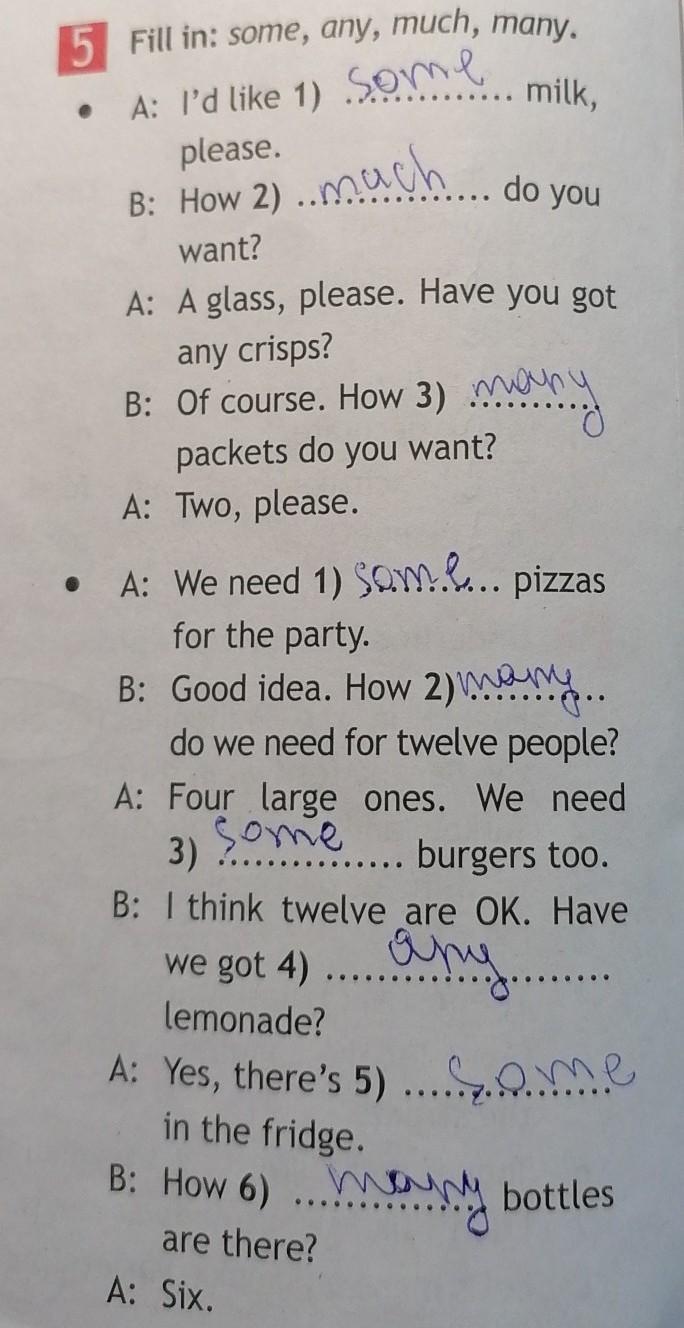 5 Fill in: some, any, much, many.
• A: I'd like 1) some milk,
please.
B: How 2) ..much do you
want?
A: A glass, please. Have you got
any crisps?
B: Of course. How 3) many
packets do you want?
A: Two, please.
• A: We need 1) some... pizzas
for the party.
B: Good idea. How 2) many..
do we need for twelve people?
A: Four large ones. We need
3) some burgers too.
B: I think twelve are OK. Have
we got 4) any
lemonade?
A: Yes, there's 5) some
in the fridge.
B: How 6) many bottles
are there?
A: Six.